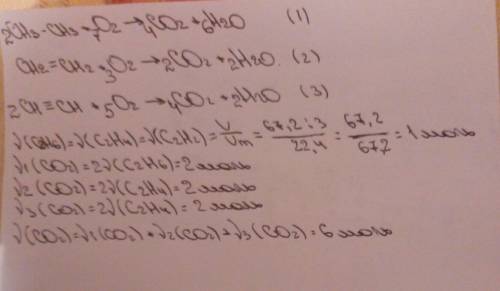 2CH3-CH3+7O2→4CO2+6H2O (1)
CH2=CH2+3O2→2CO2+2H2O. (2)
2CH≡CH+5O2→4CO2+2H2O (3)
ν(C2H6)=ν(C2H4)=ν(C2H2)=V/Vm=67,2:3/22,4=67,2/67,2=1моль
ν1(CO2)=2ν(C2H6)=2моль
ν2(CO2)=2ν(C2H4)=2моль
ν3(CO2)=2ν(C2H4)=2моль
ν(CO2)=ν1(CO2)+ν2(CO2)+ν3(CO2)=6моль